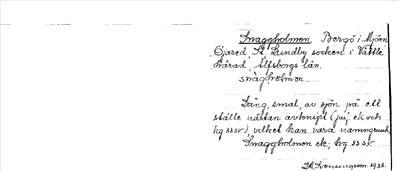 Snaggholmen Bergö i Mjörn
Ö Jared, St. Lundby socken i Vättle
härad, Älfsborgs län.
snàgholmen
Lång, smal, av sjön på ett
ställe nästan avknipt (jmj ek och
hg ss sr), vilket kan vara namngrund.
Snaggholmen ek; hrg ss.sr.
1938.